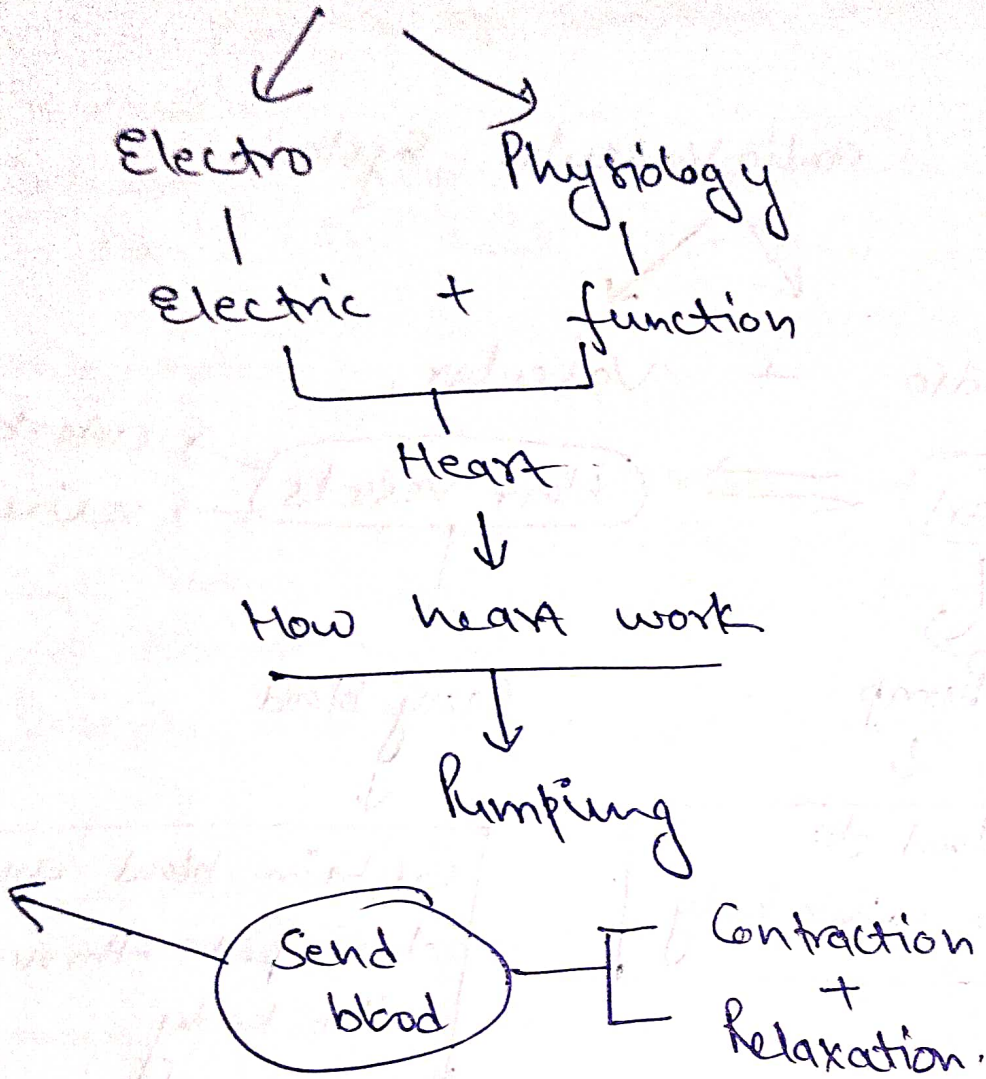 Electro Physiology
Electric + function
Heart
How heart work
Pumping
Send
blood
Contraction
+
Relaxation.